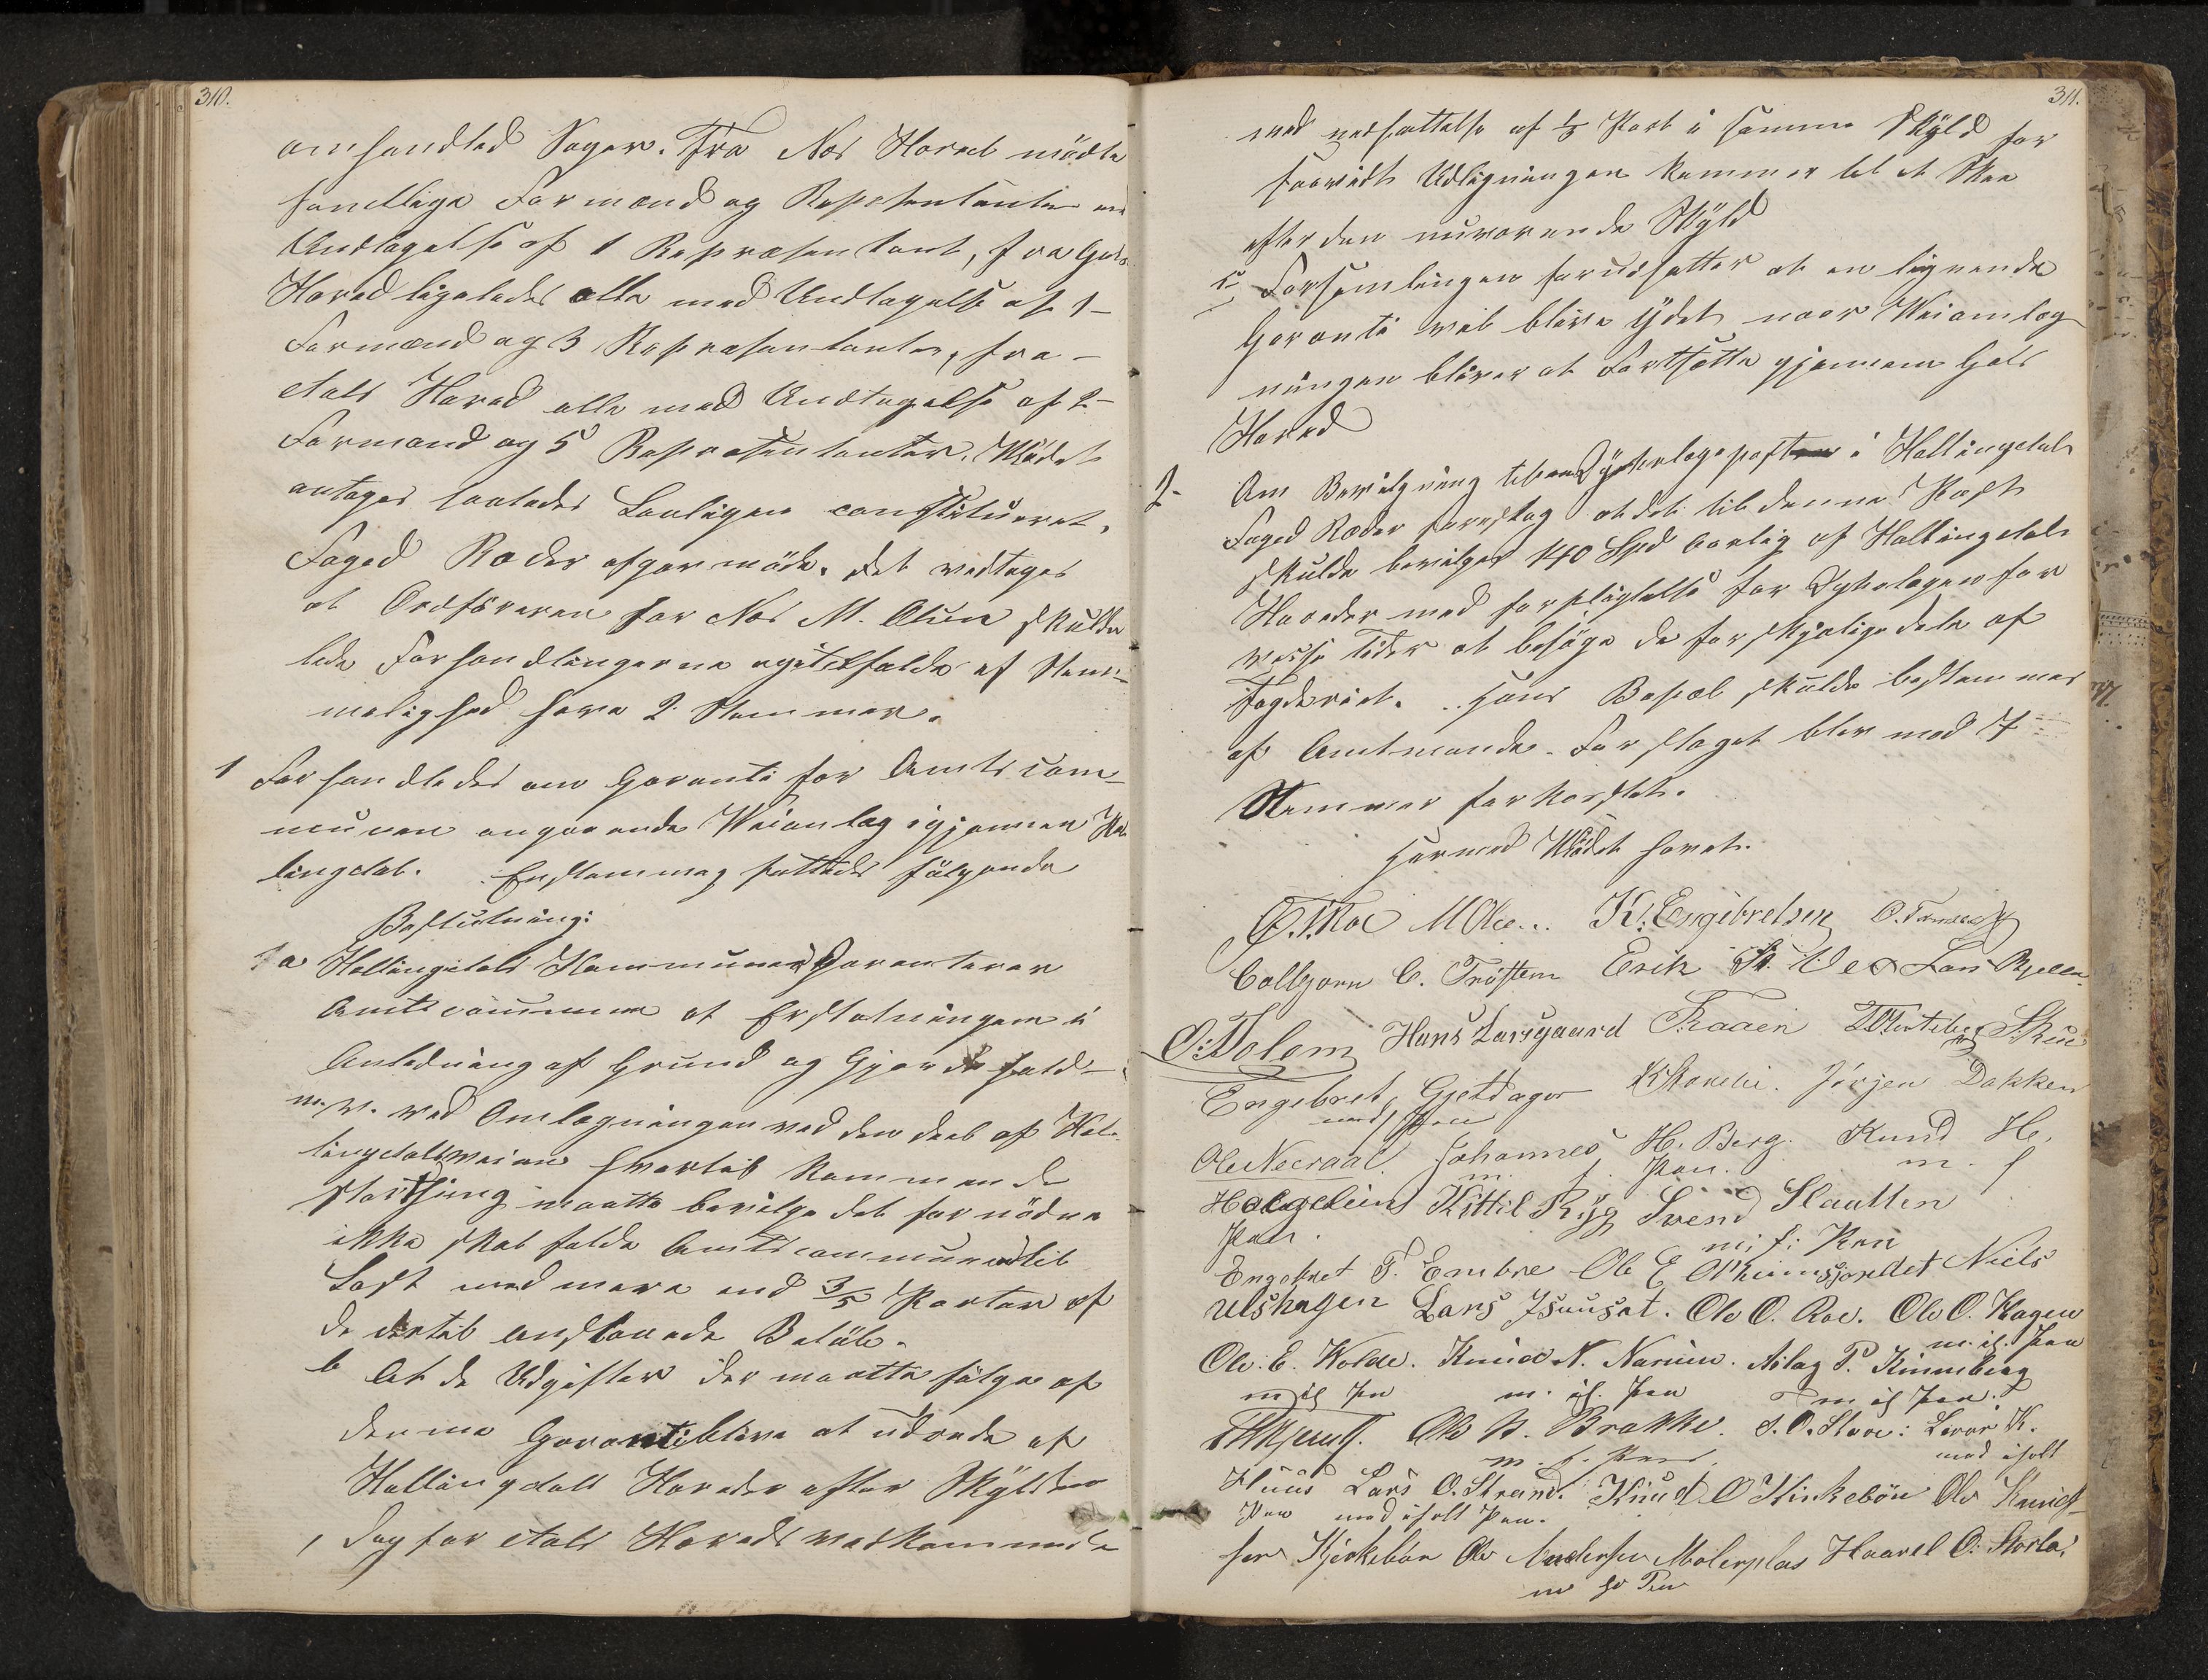 310.
omhandled Sager. Fra Næs Hered mödte
samtlige Formænd og Repræsentanter med
Undtagelse af 1 Repræsentant, fra Gols
Hered ligeledes alle med Undtagelse af 1
Formænd og 3 Repræsentanter, fra
Aals Hered alle med Undtagelse af 2
Formænd og 5 Repræsentanter. Mödet
antages saaledes Lovligen constitueret.
Foged Ræder afgav möde. Det vedtages
at Ordföreren for Næs M. Olsen skulde
lede Forhandlingerne og i tilfælde af Stem-
melighed have 2 Stemmer.
1 Forhandledes om Garanti for Amtscom-
munen angaaende Veianlæg igjennem Hal-
lingdal. Enstemmig fattedes fölgende
Beslutning:
1 a Hallingdals Kommuner Garanterer
Amtscommunen at Erstatningen i
Anledning af Grund og Gjerdehold
m. v. ved Omlægningen ved den deel af Hal-
lingdalsveien hvortil kommende
Storthing maatte bevilge det fornödne
ikke skal falde Amtscommunen til
Last med mere end 3/5 Parter af
de dertil anslaaede Belöb.
b At de Udgifter der maatte fölge af
denne Garanti blive at udrede af
Hallingdals Hereder efter Skylden
, dog for Aals Hereds vedkommende
311.
med nedsættelse af 1/3 Part i samme Skyld for
saavidt Udligningen kommer til at Skee
efter den nuværende Skyld
c, Forsamlingen forudsætter at en lignende
Garanti vil blive ydet naar Veiomlæg
ningen bliver at Fortsætte gjennem Gols
Hered
2. Om Bevilgning til en Dyrlægepost i Hallingdal
Foged Ræder foreslog at det til denne Post
skulde bevilges 140 Spd aarlig af Hallingdals
Hereder med forpligtelse for Dyrlægen for
visse tider at besöge de forskjelige dele af
Fogderiet. Hans Bopæl skulde bestemmes
af Amtmanden. Forslaget blev med 7
Stemmer forkastet.
Hermed Mödet hævet.
M Olsen K. Engebretsen
Colbjorn C. Tröstem Erik
O: Tolem Hans Larsgaard Traaen Skue
Engebret Gjetdager Jörgen Dokken
med Pen
Ole Necraal Johannes H. Berg. Knud H.
m. f. Pen. m. f
Helgeleins Kittil Ryg Svend Slaatten
Pen. m; f; Pen
Engebret T. Embre Ole E Niels
Ulshagen Lars Ole O. Roe. Ole O. Hagen
m. if. Pen
Ole. E. Wolde. Knud N. Narum. Aslag P. Kinneberg
m if Pen m. if. Pen m if Pen.
Ole N. Brakke. S. O. Stave: Levor K.
m. f. Pen. med iholt
Huus Lars O. Strand. Knud O Kirkebön Ole Knud-
Pen med iholt Pen.
sen Kjirkebön Ole Andersen Molerplas Haavel O: Storla,
m. h. Pen